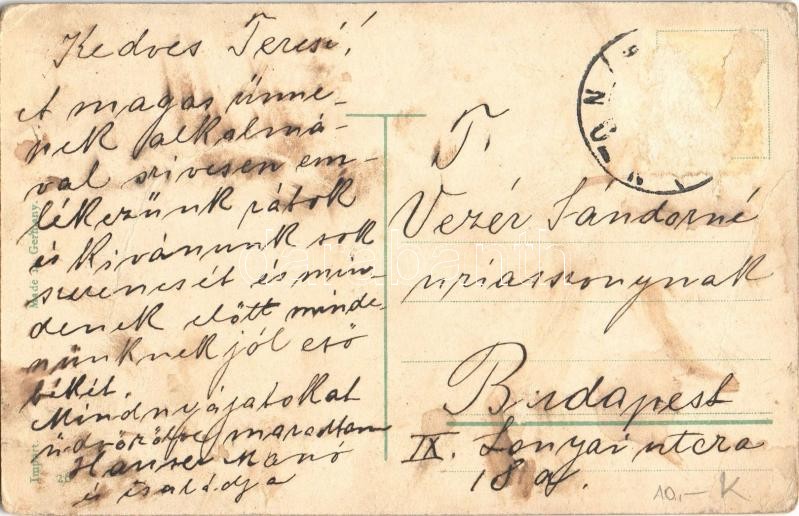 Kedves Tercsi!
A magas ünne-
nek alkalmá-
val szivesen em-
lékezünk rátok
és Kivánunk sok
szerencsét és min-
denek előtt minde-
nünknek jól eső
békét.
Mindnyájatokat
üdvözölve maradtam
Hauser Manó
és családja
T.
Vezér Sándorné
uriasszonynak
Budapest
IX. Lonyai utcza
18 a.
10,- K
Made in Germany.
Import